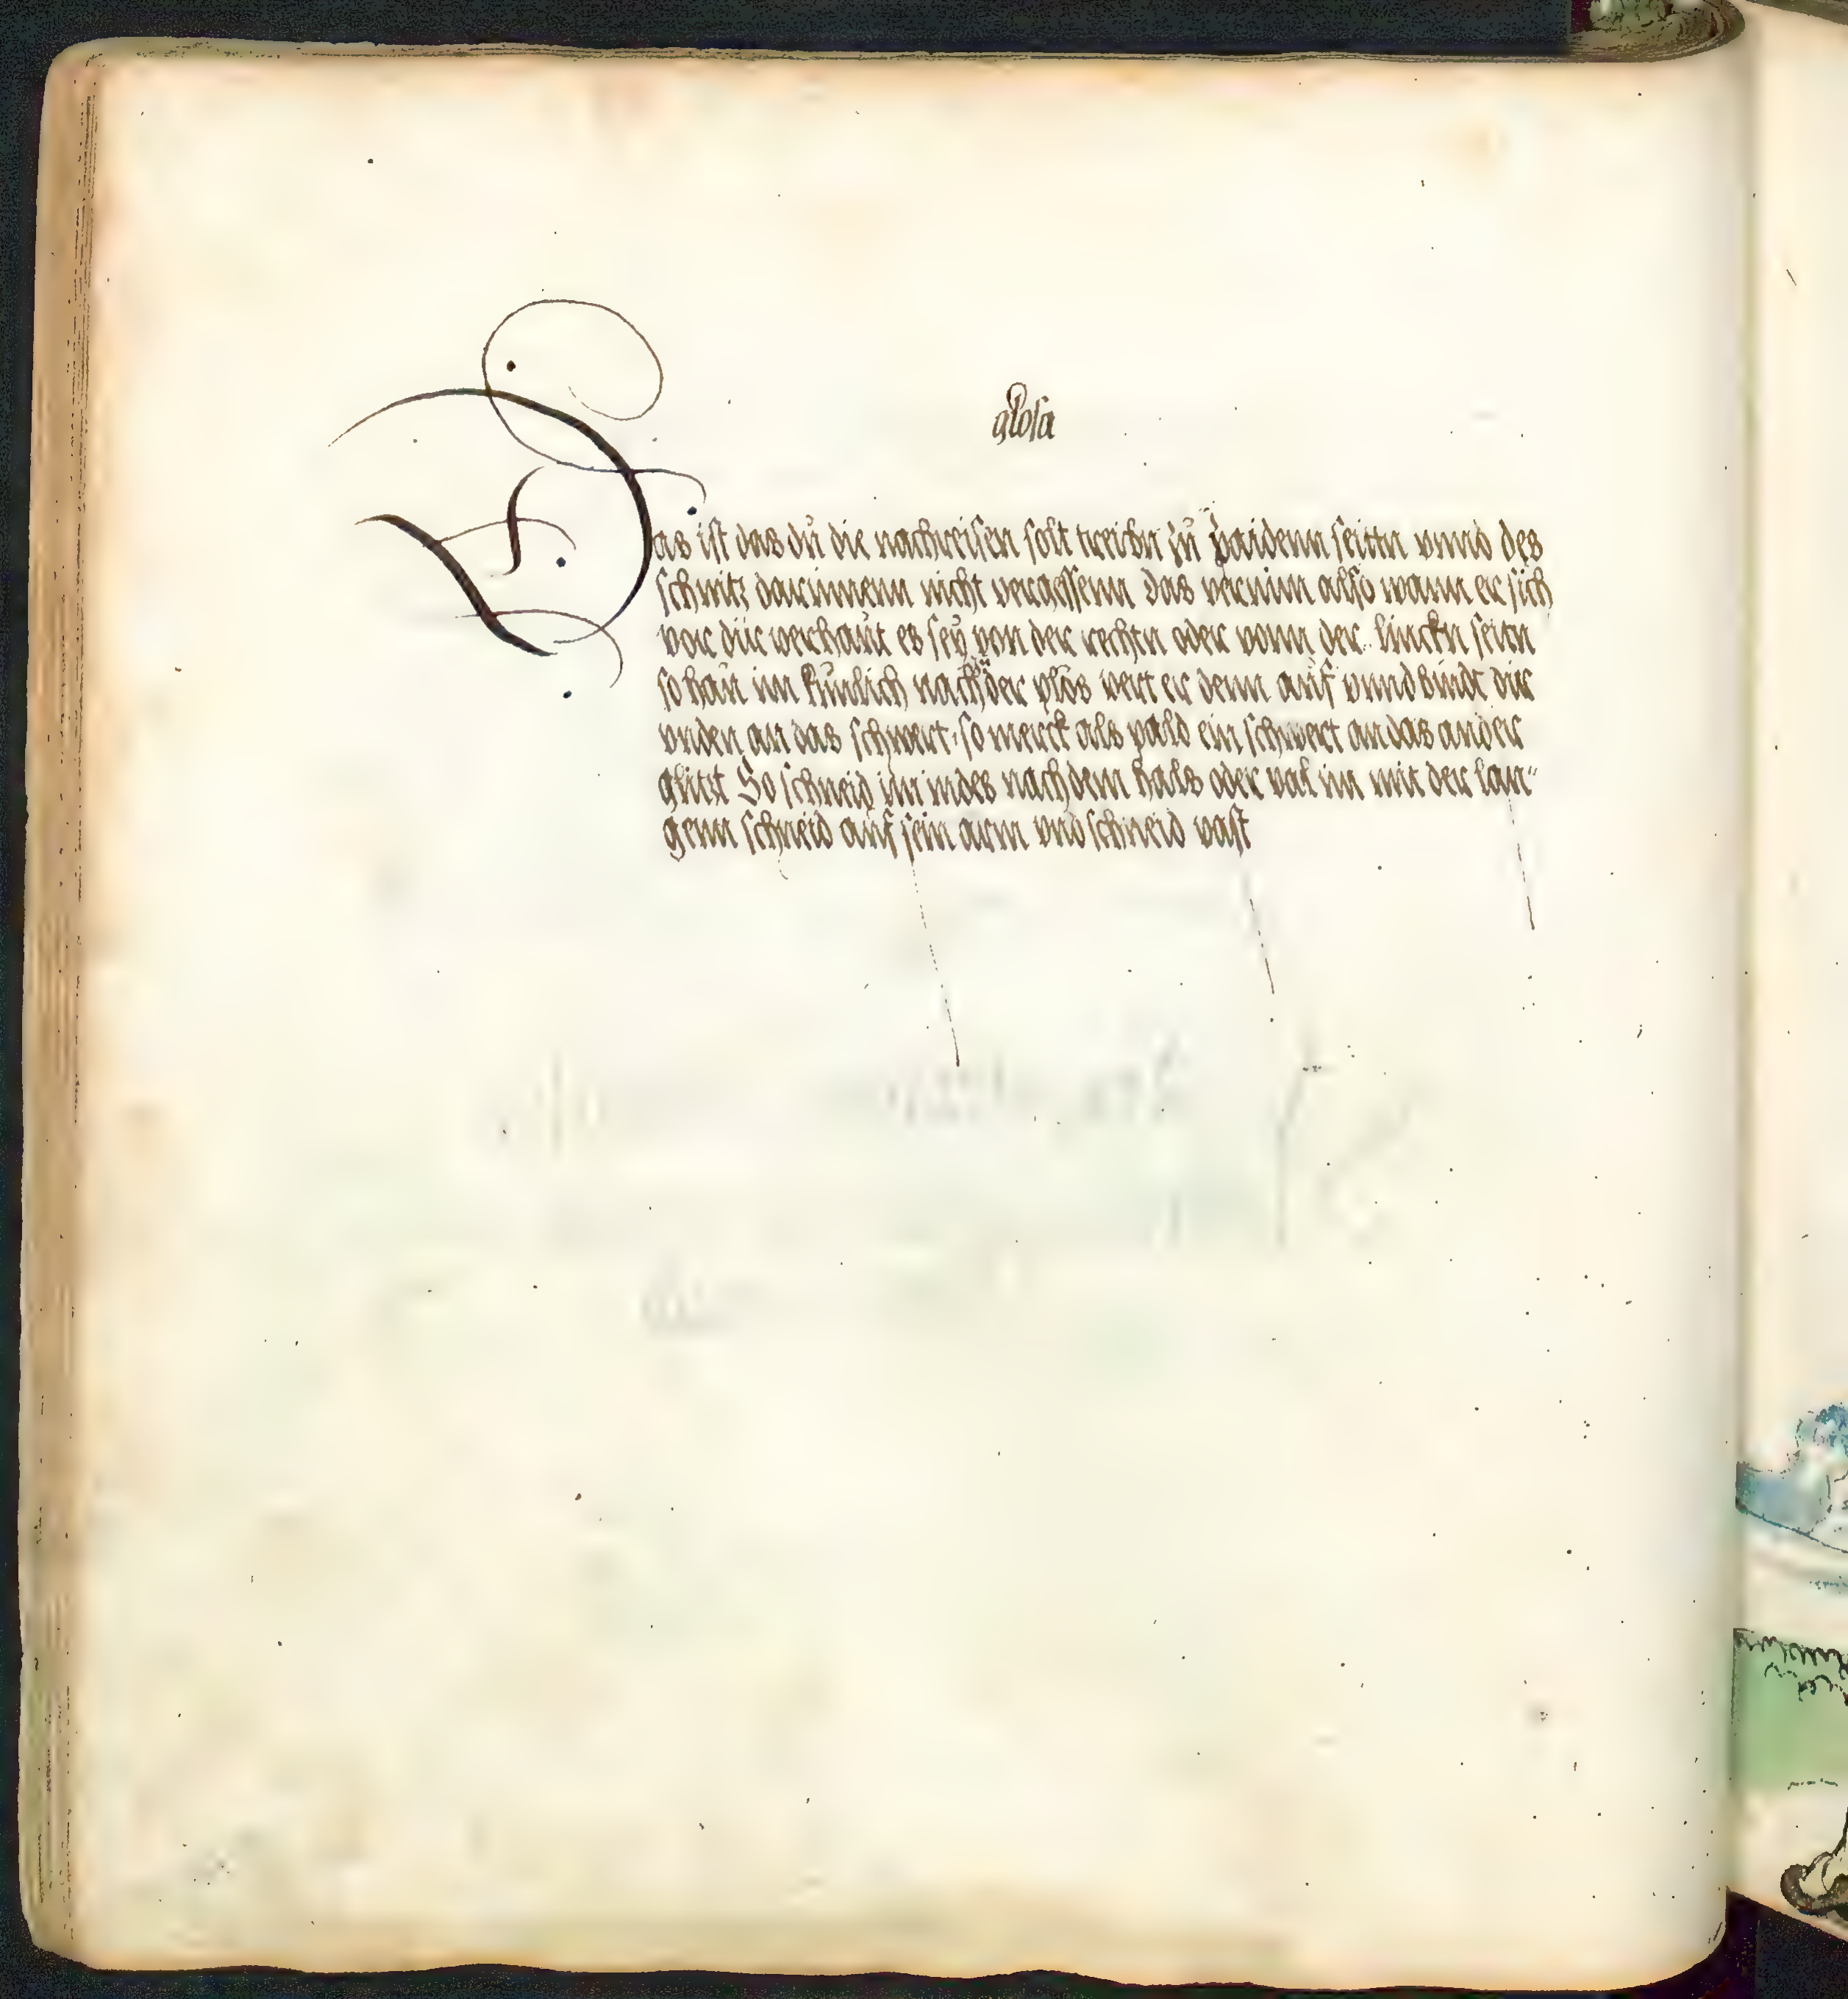 glosa
Das ist das dŭ die nachreisen solt treibn zŭ paidenn seittn vnnd des
schnitz darinnenn nicht vergessenn Das vernim also wann er sich
vor dir verhaŭt es seÿ von der rechtn oder vonn der linckn seittn
so haŭ im kŭnlich nach der plös vert er denn aŭf vnnd bindt dir
vnden an das schwert so merck als pald ein schwert an das ander
glitzt So schneid im indes nach dem hals oder val im mit der lan-
genn schneid aŭf sein arm vnd schneid vast